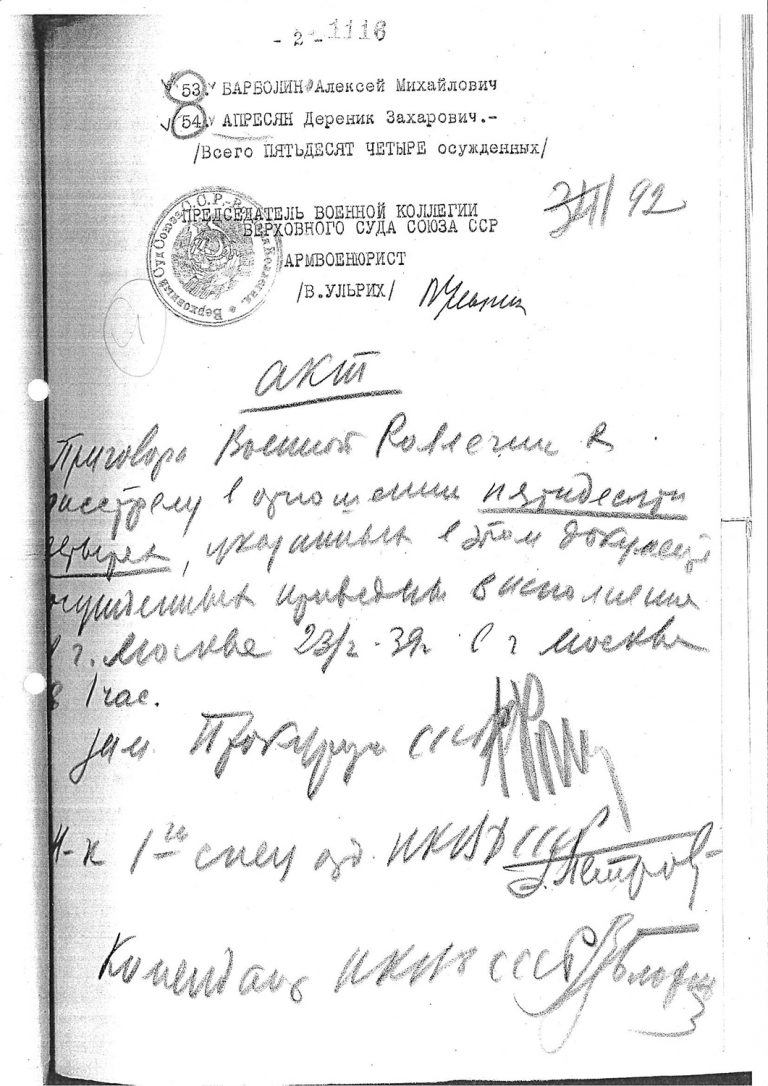 - 2 - 1116
53. БАРБОЛИН Алексей Михайлович
54. АПРЕСЯН Дереник Захарович.-
/Всего ПЯТЬДЕСЯТ ЧЕТЫРЕ осужденных/
92
ПРЕДСЕДАТЕЛЬ ВОЕННОЙ КОЛЛЕГИИ
ВЕРХОВНОГО СУДА СОЮЗА ССР
АРМВОЕНЮРИСТ
/В.УЛЬРИХ/ ВУльрих
Верховный Суд Союза С.С.Р.
Акт
Приговора Военной Коллегии к
расстрелу в отношении пятидесяти
четырех, указанных в этом документе
осужденных приведены в исполнение
в г. Москве 23/2-39г. в г Москве
в 1 час.
Зам. Прокурора СССР
Н-к 1го спец отд. НКВД СССР
Петров
Комендант НКВД СССР Блохин